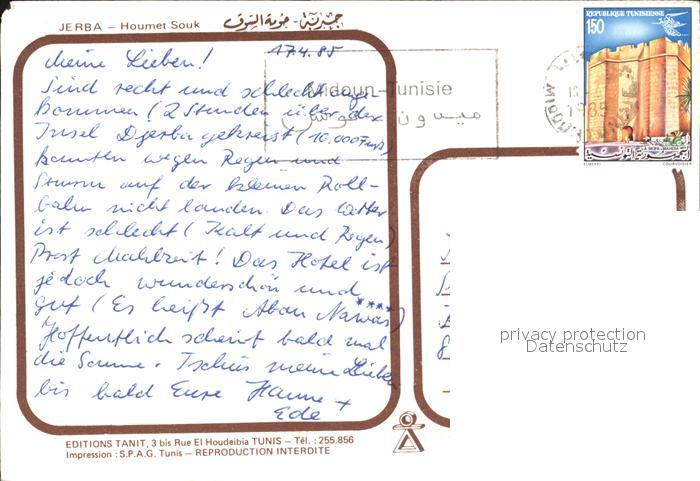 JERBA – Houmet Souk جربة - حومة السوق
17.4.85
Meine Lieben!
Sind recht und schlecht ange
kommen (2 Stunden über der
Insel Djerba gekreist (10.000 Fuß)
konnten wegen Regen und
Sturm auf der kleinen Roll-
bahn nicht landen. Das Wetter
ist schlecht (Kalt und Regen)
Prost Mahlzeit! Das Hotel ist
jedoch wunderschön und
gut (Es heißt Abou Nawas****)
Hoffentlich scheint bald mal
die Sonne. Tschüs meine Lieben
bis bald Eure Hanne +
Ede
EDITIONS TANIT, 3 bis Rue El Houdeibia TUNIS – Tél. : 255.856
Impression : S.P.A.G. Tunis – REPRODUCTION INTERDITE
Midoun-Tunisie
ميدون - تونس
1985
REPUBLIQUE TUNISIENNE
150
الجمهورية التونسية
privacy protection
Datenschutz